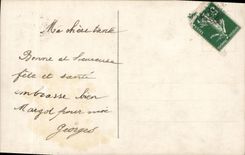 Ma chère tante
Bonne et heureuse
fête et santé
embrasse bien
Margot pour moi
Georges